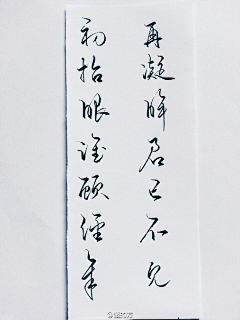 初抬眼谁顾经年
再凝眸君已不见